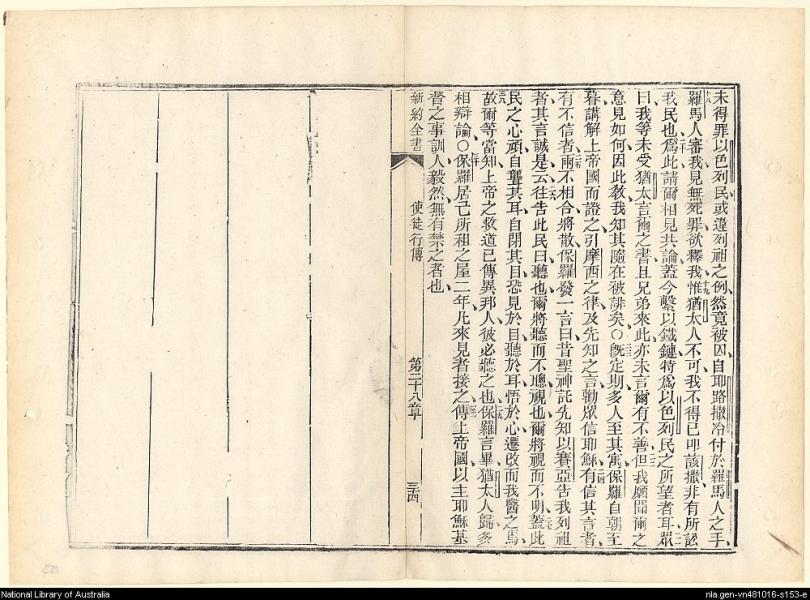 未得罪以色列民或違列祖之例然竟被囚自耶路撒冷付於羅馬人之手
十八
羅馬人審我見無死罪欲釋我惟猶太人不可我不得已叩該撒非有所訟
十九
我民也爲此請爾相見共論蓋今繫以鐵鏈特爲以色列民之所望者耳眾
二十
二一
曰我等未受猶太言爾之書且兄弟來此亦未言爾有不善但我願聞爾之
二二
意見如何因此教我知其隨在被誹矣〇旣定期多人至其寓保羅自朝至
二三
暮講解上帝國而證之引摩西之律及先知之言勸眾信耶穌有信其言者
二四
有不信者兩不相合將散保羅發一言曰昔聖神託先知以賽亞告我列祖
二五
者其言誠是云往告此民曰聽也爾將聽而不聰視也爾將視而不明蓋此
二六
二七
民之心頑自聾其耳自閉其目恐見於目聽於耳悟於心遷改而我醫之焉
二八
故爾等當知上帝之救道已傳異邦人彼必聽之也保羅言畢猶太人歸多
二九
相辯論〇保羅居己所租之屋二年凡來見者接之傳上帝國以主耶穌基
三十
三一
督之事訓人毅然無有禁之者也
新約全書
使徒行傳
第二十八章
三四
National Library of Australia
nla.gen-vn481016-s153-e